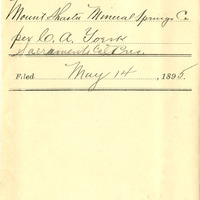 Mount Shasta Mineral Springs Co
per C. A. Yoerk
Sacramento Cal Pres.
Filed May 14, 1895.